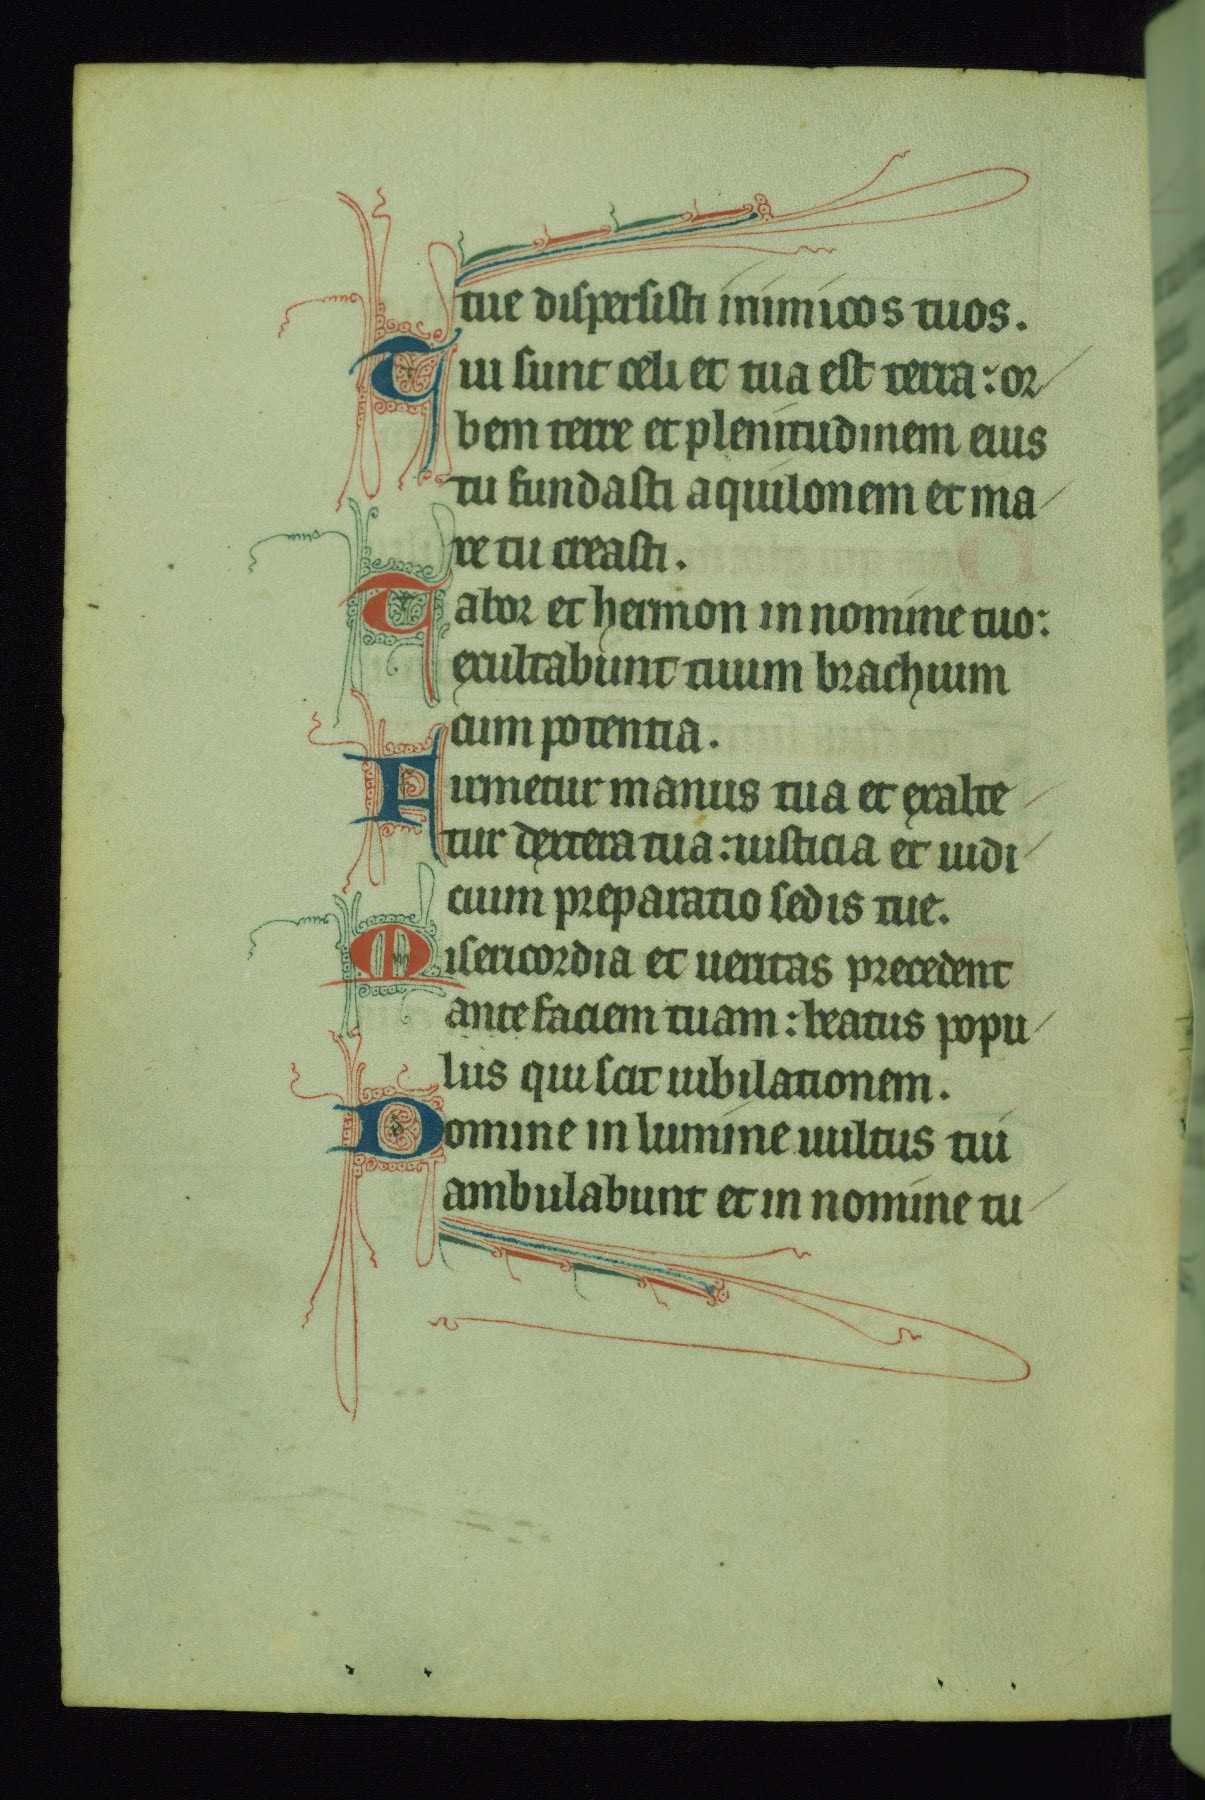 tue dispersisti inimicos tuos.
Tui sunt celi et tua est terra: or
bem terre et plenitudinem eius
tu fundasti aquilonem et ma
re tu creasti.
Tabor et hermon in nomine tuo:
exultabunt tuum brachium
cum potentia.
Firmetur manus tua et exalte
tur dextera tua: iusticia et iudi
cium preparatio sedis tue.
Misericordia et ueritas precedent
ante faciem tuam: beatus popu
lus qui scit iubilationem.
Domine in lumine uultus tui
ambulabunt et in nomine tu